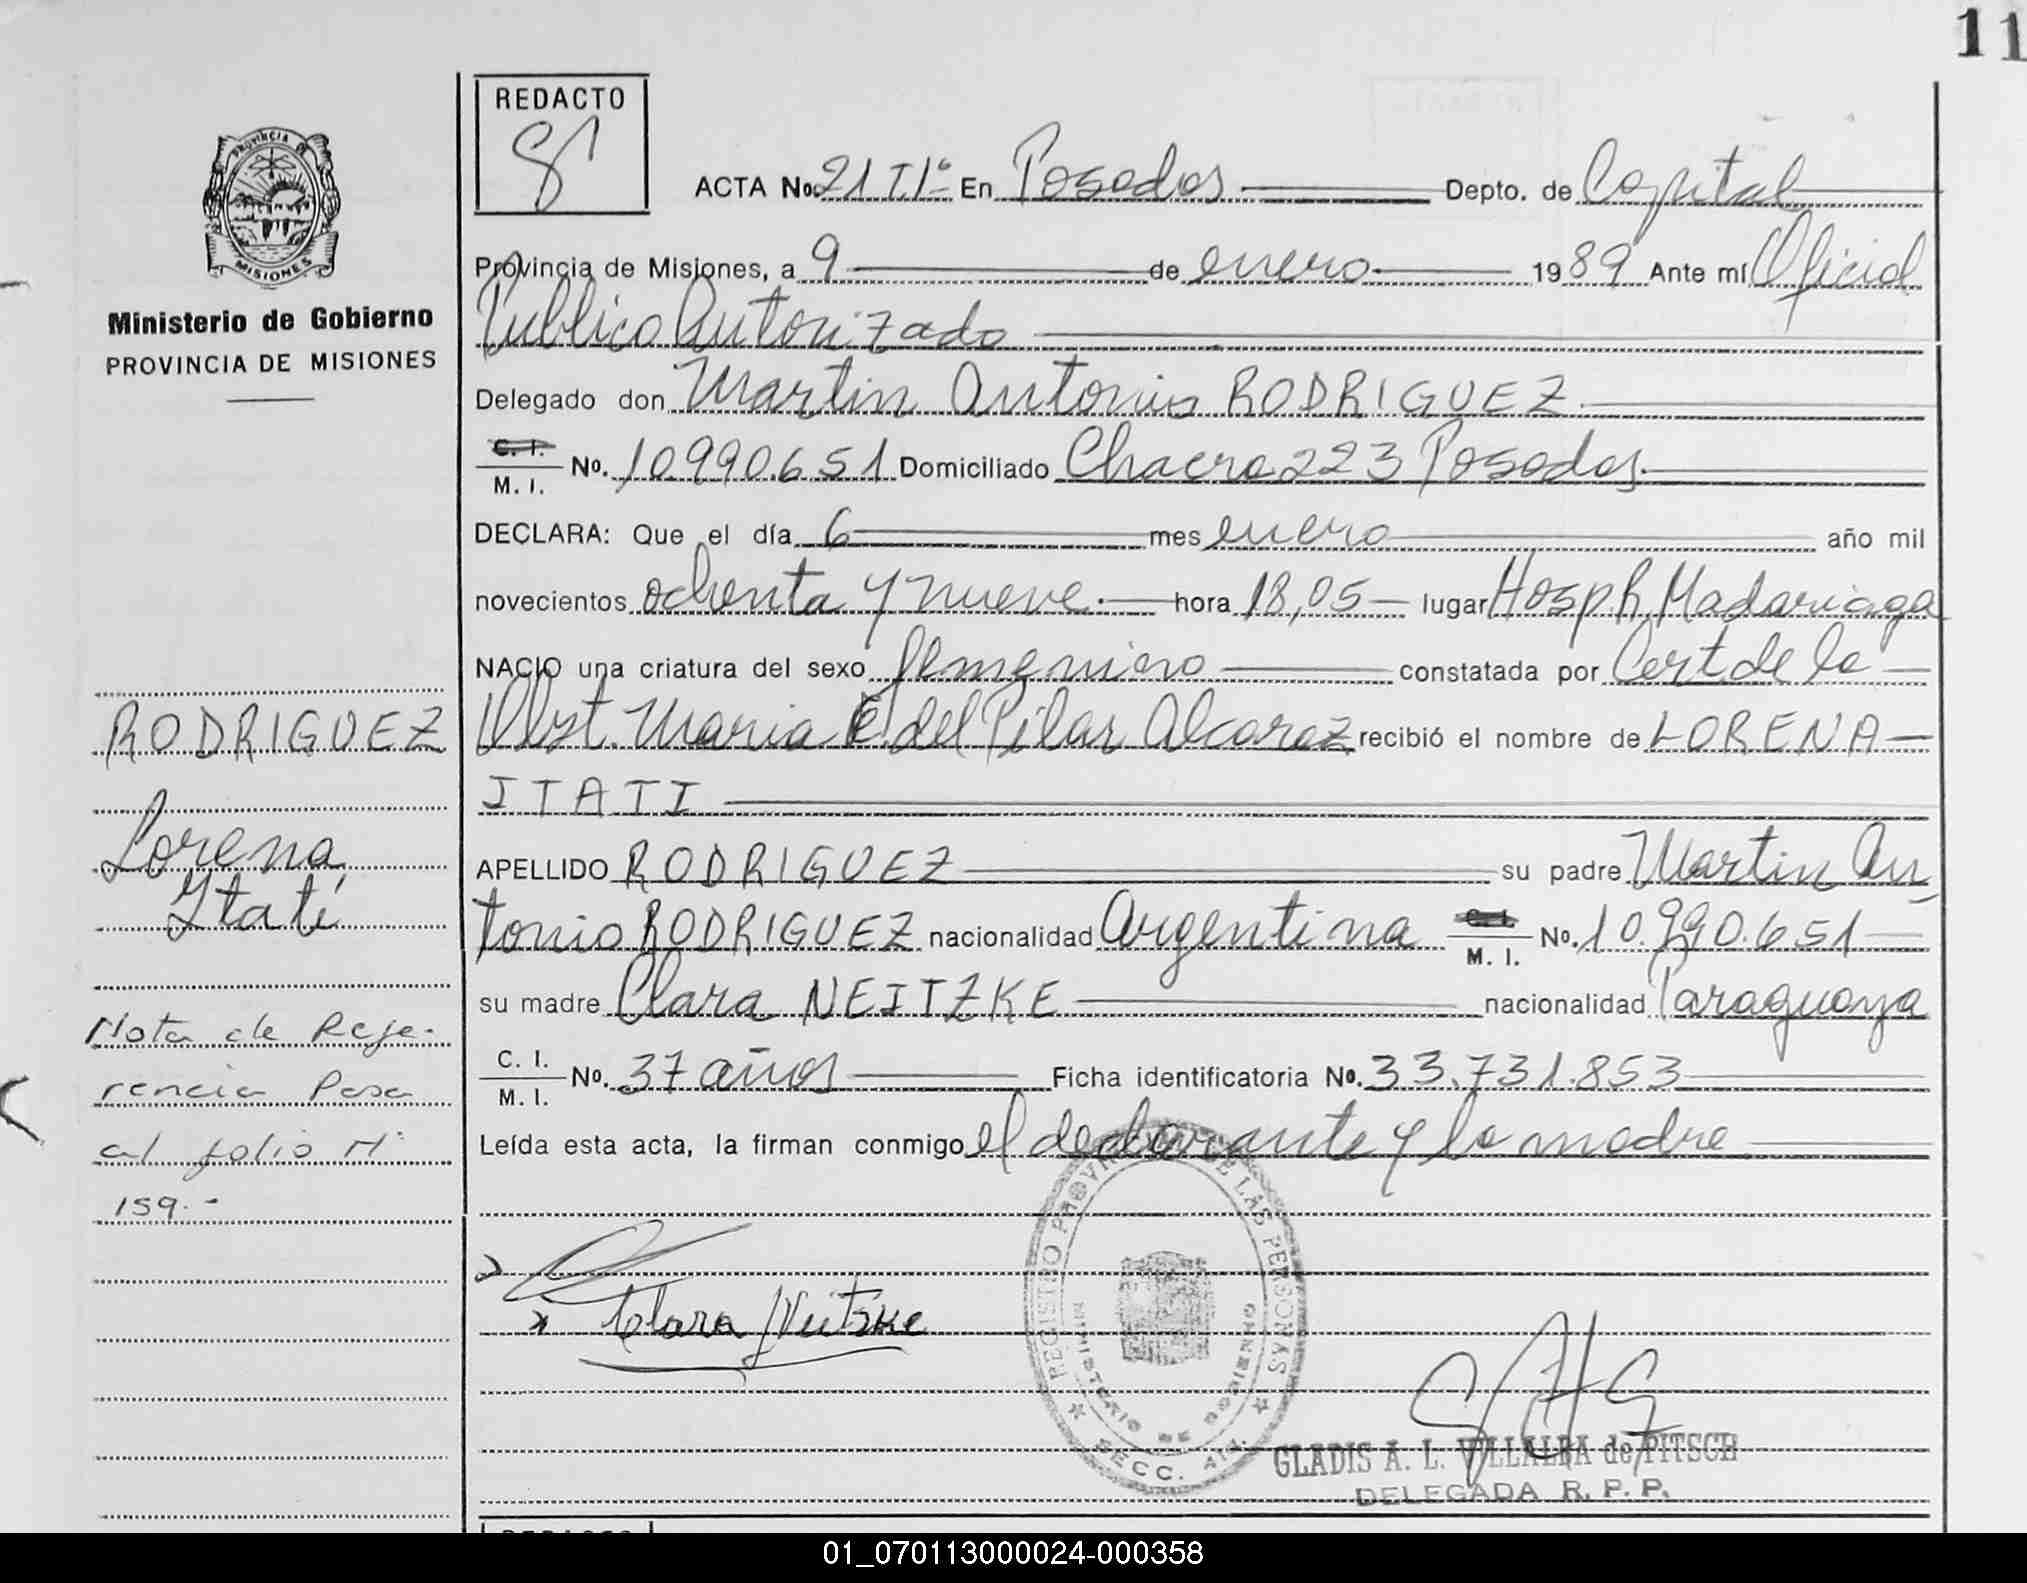 11
REDACTO
PROVINCIA DE
MISIONES
Ministerio de Gobierno
PROVINCIA DE MISIONES
ACTA No. 21 TIº En Posadas Depto. de Capital
Provincia de Misiones, a 9 de enero 1989 Ante mí Oficial
Publico Autorizado
Delegado don Martin Antonio RODRIGUEZ
C. I.
M. I. No. 10.990.651 Domiciliado Chacra 223 Posadas
DECLARA: Que el día 6 mes enero año mil
novecientos ochenta y nueve hora 18,05 lugar Hosp. R. Madariaga
NACIO una criatura del sexo femenino constatada por Cert de la
Obst. Maria E. del Pilar Alcaraz recibió el nombre de LORENA
ITATI
APELLIDO RODRIGUEZ su padre Martin An
tonio RODRIGUEZ nacionalidad Argentina C. I. M. I. No. 10.990.651
su madre Clara NEITZKE nacionalidad Paraguaya
C. I.
M. I. No. 37 años Ficha identificatoria No. 33.731.853
Leída esta acta, la firman conmigo el declarante y la madre
RODRIGUEZ
Lorena
Itatí
Nota de Refe-
rencia Pasa
al folio Nº
159.-
Clara Neitzke
REGISTRO PROVINCIAL DE LAS PERSONAS
MINISTERIO DE GOBIERNO
SECC.
GLADIS A. L. VILLALBA de PITSCH
DELEGADA R. P. P.
01_070113000024-000358